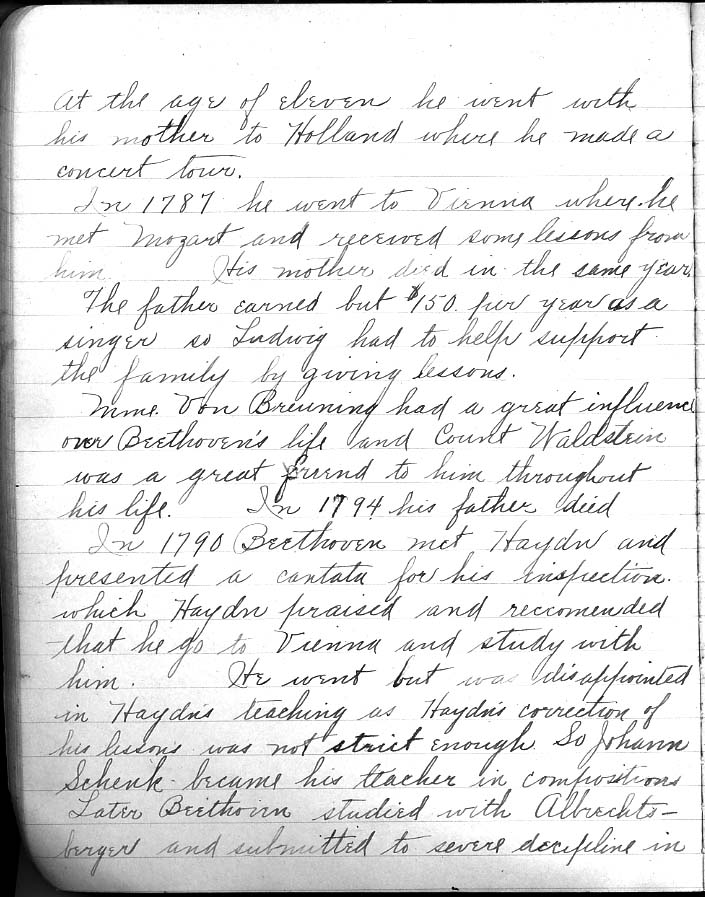 At the age of eleven he went with
his mother to Holland where he made a
concert tour.
In 1787 he went to Vienna where he
met Mozart and received some lessons from
him. His mother died in the same year.
The father earned but $150. pur year as a
singer so Ludwig had to help support
the family by giving lessons.
Mme. Von Breuning had a great influence
over Beethoven's life and Count Waldstein
was a great friend to him throughout
his life. In 1794 his father died
In 1790 Beethoven met Haydn and
presented a cantata for his inspection.
which Haydn praised and reccomended
that he go to Vienna and study with
him. He went but was disappointed
in Haydn's teaching as Haydn's correction of
his lessons was not strict enough. So Johann
Schenk became his teacher in compositions
Later Beethoven studied with Albrechts-
berger and submitted to severe decipline in